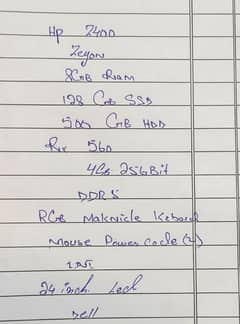 Hp Z400
Zeyon
8GB Ram
128 GB SSD
500 GB HDD
Rx 560
4GB 256Bit
DDR5
RGB Maknicle Kebord
Mouse Power cacle (2)
24 inch Led
Dell